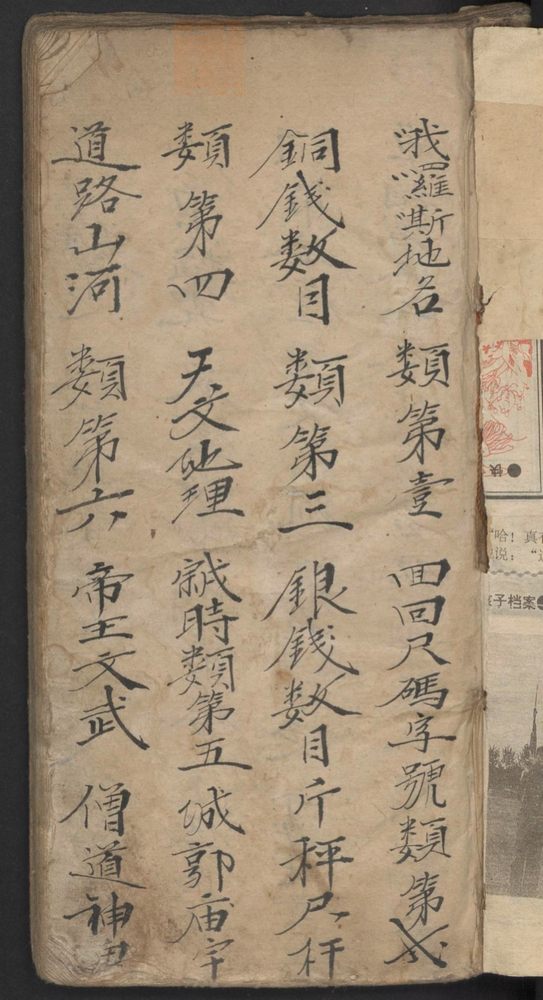 哦囉嘶地名類第壹 回回尺碼字號類第弍
銅錢数目類第三 銀錢数目斤秤尺杆
類第四 天文地理 時類第五 城郭庙宇
道路山河類第六 帝王文武 僧道神
哈！真
说：
子档案